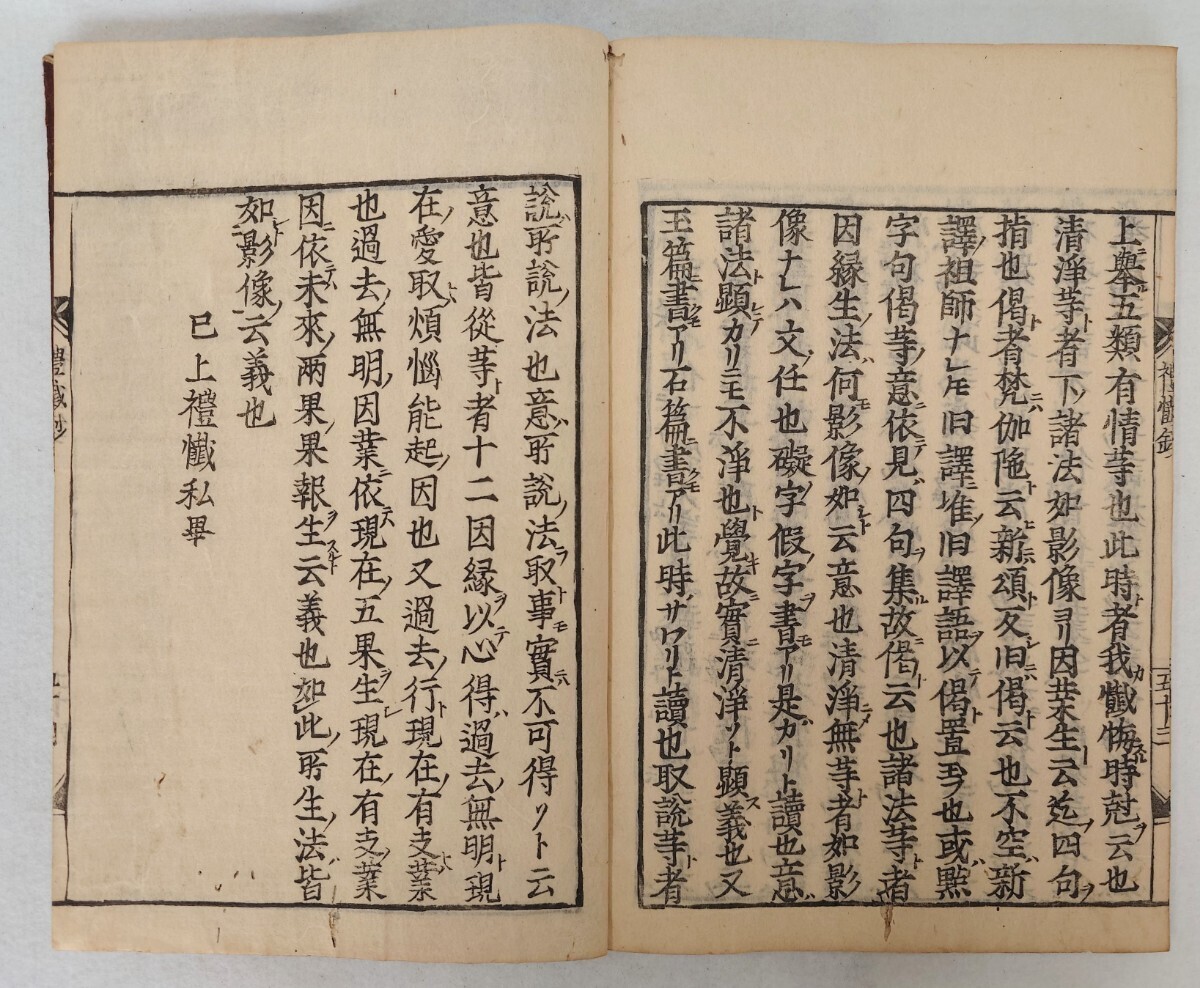 上擧五類有情等也此時者我懺悔時愆云也
清淨等者下諸法如影像ヨリ因業生云迄四句
指也偈者梵伽陁云新頌反旧偈云也不空新
譯祖師ナレモ旧譯堆旧譯語以偈置玉今也或點
字句偈等意依見四句集故偈云也諸法等者
因縁生法何影像如云意也清淨無等者如影
像ナレハ文任也礙字假字書アリ是ガリト讀也意
諸法顯カリニモ不淨也覺故實清淨ツト顯義也又
玉篇書アリ石篇書アリ此時サワリト讀也取說等者
禮懺鈔
五十三
說所說法也意所說法取事實不可得ツト云
意也皆從等者十二因縁以心得過去無明現
在愛取煩惱能起因也又過去行現在有支業
也過去無明因業依現在五果生現在有支業
因依未來兩果果報生云義也如此所生法皆
如影像云義也
已上禮懺私畢
禮懺鈔